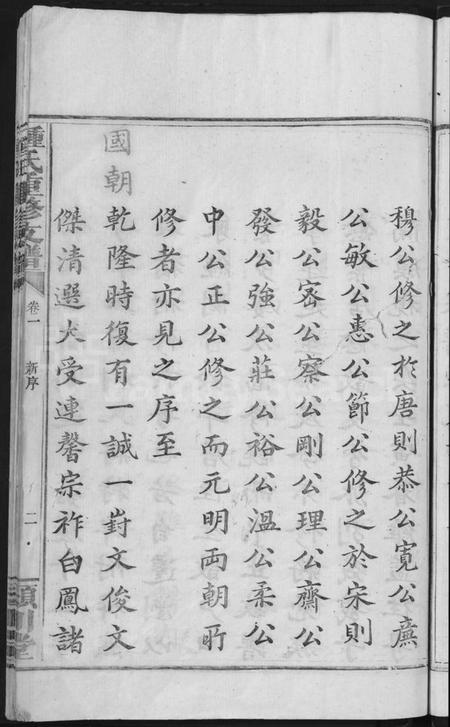 穆公修之於唐則恭公寬公廉
公敏公惠公節公修之於宋則
毅公密公察公剛公理公齋公
發公強公莊公裕公溫公柔公
中公正公修之而元明两朝所
修者亦見之序至
國朝乾隆時復有一誠一封文俊文
傑清選大受連馨宗祚白鳳諸
鍾氏重修支譜
卷一
新序
二
潁川堂